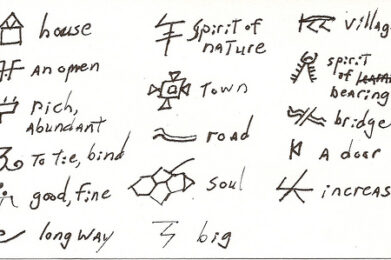 house
an omen
rich,
abundant
To tie, bind
good, fine
long way
spirit of
nature
Town
road
soul
big
villag
spirit
of
bearing
bridge
A door
increas